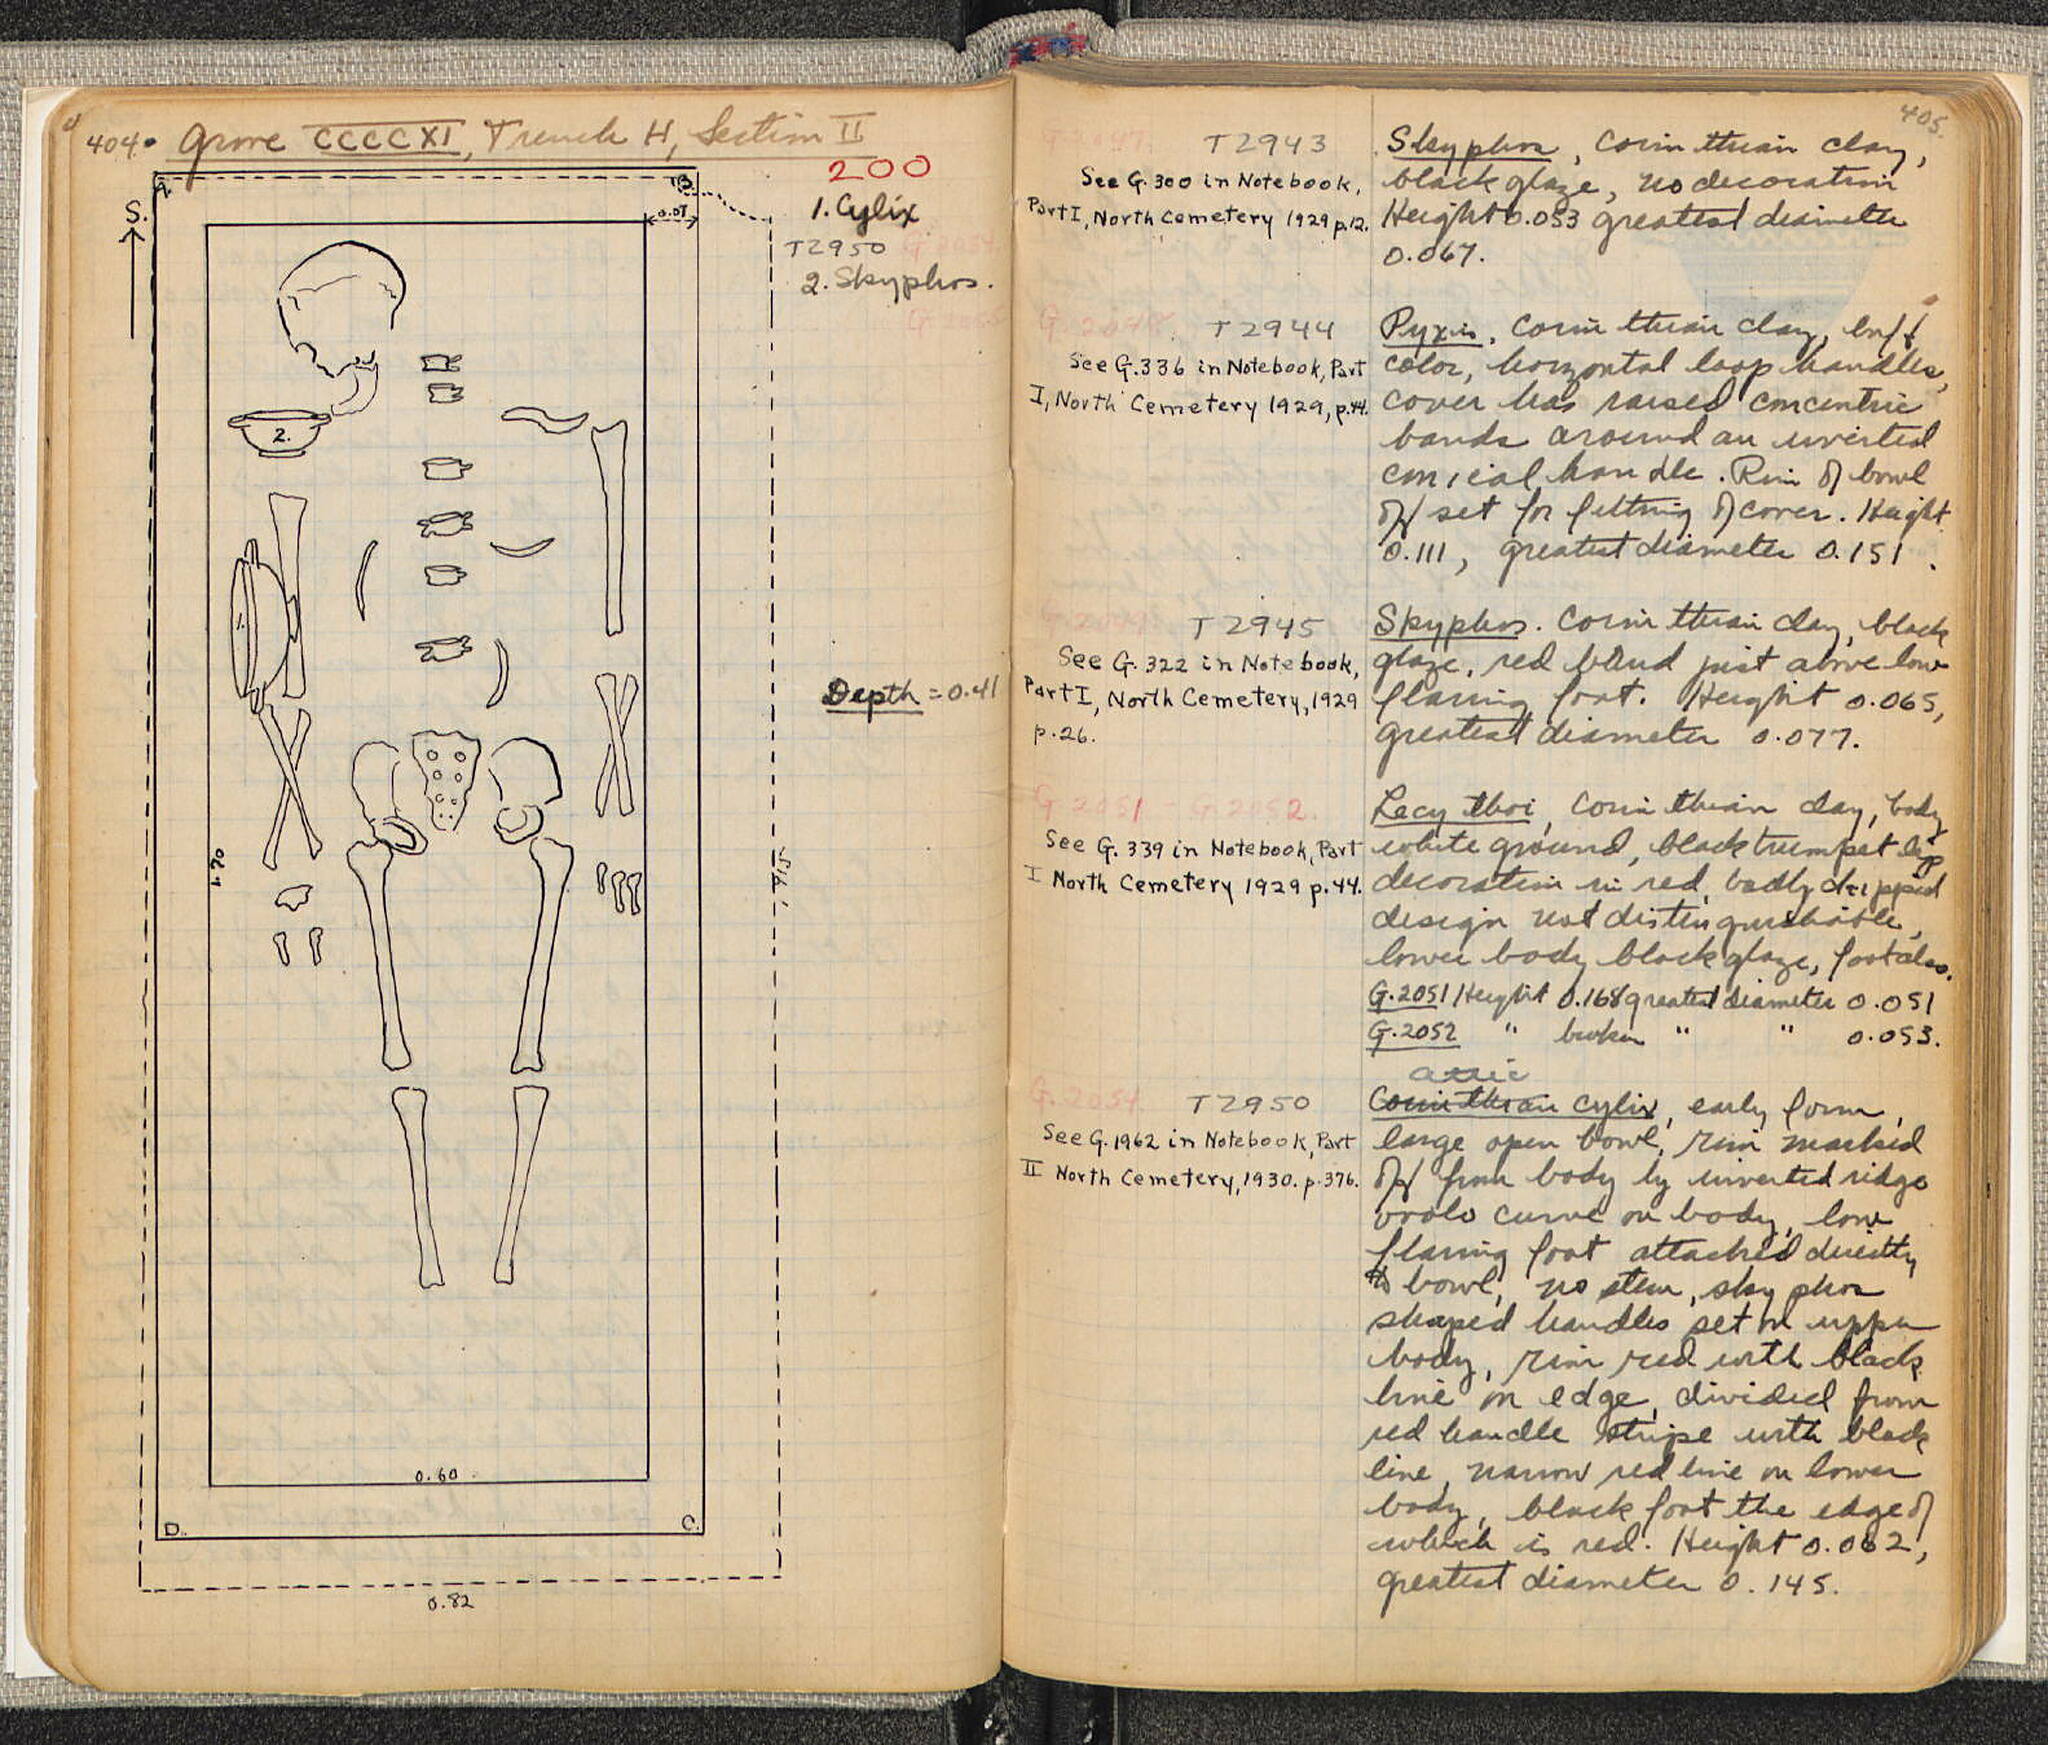 404. Grave CCCCXI, Trench H, Section II
200
A.
B.
S.
0.07
1. Cylix
T2950 G. 2054.
2. Skyphos.
2.
1.
Depth = 0.41
1.70
0.60
D.
C.
0.82
405.
G. 2047. T2943
See G. 300 in Notebook,
Part I, North Cemetery 1929 p.12.
Skyphos, Corinthian clay,
black glaze, no decoration
Height 0.053 greatest diameter
0.067.
G. 2048. T2944
See G. 336 in Notebook, Part
I, North Cemetery 1929, p.44.
Pyxis, Corinthian clay, buff
color, horizontal loop handles,
cover has raised concentric
bands around an inverted
conical handle. Rim of bowl
off set for fitting of cover. Height
0.111, greatest diameter 0.151.
G. 2049 T2945
See G. 322 in Notebook,
Part I, North Cemetery, 1929
p.26.
Skyphos. Corinthian clay, black
glaze, red band just above low
flaring foot. Height 0.065,
greatest diameter 0.077.
G 2051 - G. 2052.
See G. 339 in Notebook, Part
I North Cemetery 1929 p.44.
Lecythoi, Corinthian clay, body
white ground, black trumpet lip
decoration in red, badly chipped
design not distinguishable,
lower body black glaze, foot also.
G.2051 Height 0.168 greatest diameter 0.051
G.2052 " broken " " 0.053.
G. 2054 T2950
See G. 1962 in Notebook, Part
II North Cemetery, 1930. p.376.
attic
Corinthian cylix, early form,
large open bowl, rim marked
off from body by inverted ridge
ovolo curve on body, low
flaring foot attached directly
to bowl, no stem, skyphos
shaped handles set on upper
body, rim red with black
line on edge, divided from
red handle stripe with black
line, narrow red line on lower
body, black foot the edge of
which is red. Height 0.062,
greatest diameter 0.145.